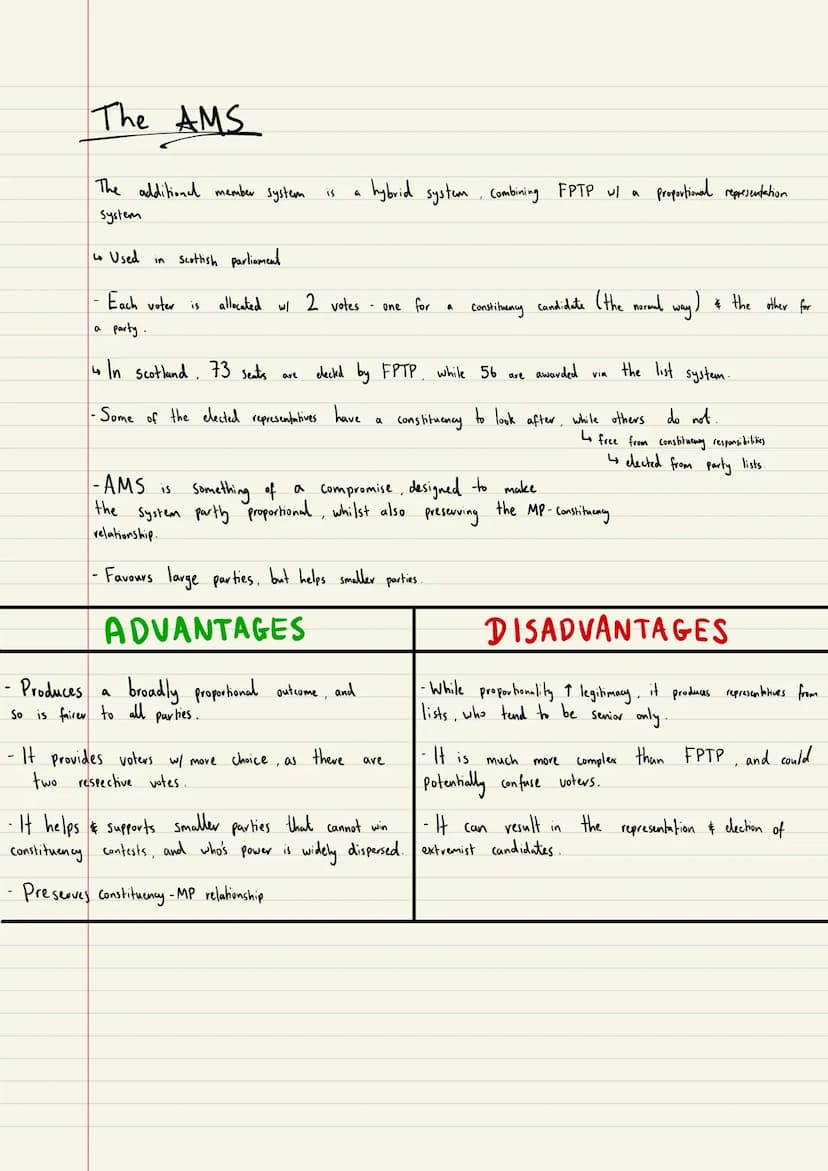 The AMS
The additional member system is a hybrid system, combining FPTP w/ a proportional representation
system
↳ Used in Scottish parliament
- Each voter is allocated w/ 2 votes - one for a constituency candidate (the normal way) & the other for
a party.
↳ In Scotland, 73 seats are elected by FPTP, while 56 are awarded via the list system.
- Some of the elected representatives have a constituency to look after, while others do not.
↳ free from constituency responsibilities
↳ elected from party lists.
- AMS is something of a compromise, designed to make
the system partly proportional, whilst also preserving the MP-Constituency
relationship.
- Favours large parties, but helps smaller parties.
ADVANTAGES
- Produces a broadly proportional outcome, and
so is fairer to all parties.
- It provides voters w/ more choice, as there are
two respective votes.
- It helps & supports smaller parties that cannot win
constituency contests, and who's power is widely dispersed.
- Preserves constituency-MP relationship
DISADVANTAGES
- While proportionality ↑ legitimacy, it produces representatives from
lists, who tend to be senior only.
- It is much more complex than FPTP, and could
potentially confuse voters.
- It can result in the representation & election of
extremist candidates.